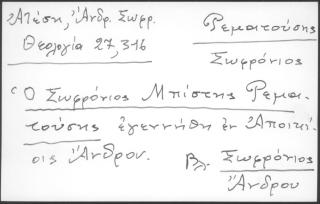 Ἀτέση, Ἀνδρ. Σωφρ.
Θεολογία 27,316
Ρεματούσης
Σωφρόνιος
Ὁ Σωφρόνιος Μπίστης Ρεμα-
τούσης ἐγεννήθη ἐν Ἀποικί-
οις Ἄνδρου.
Βλ. Σωφρόνιος
Ἄνδρου